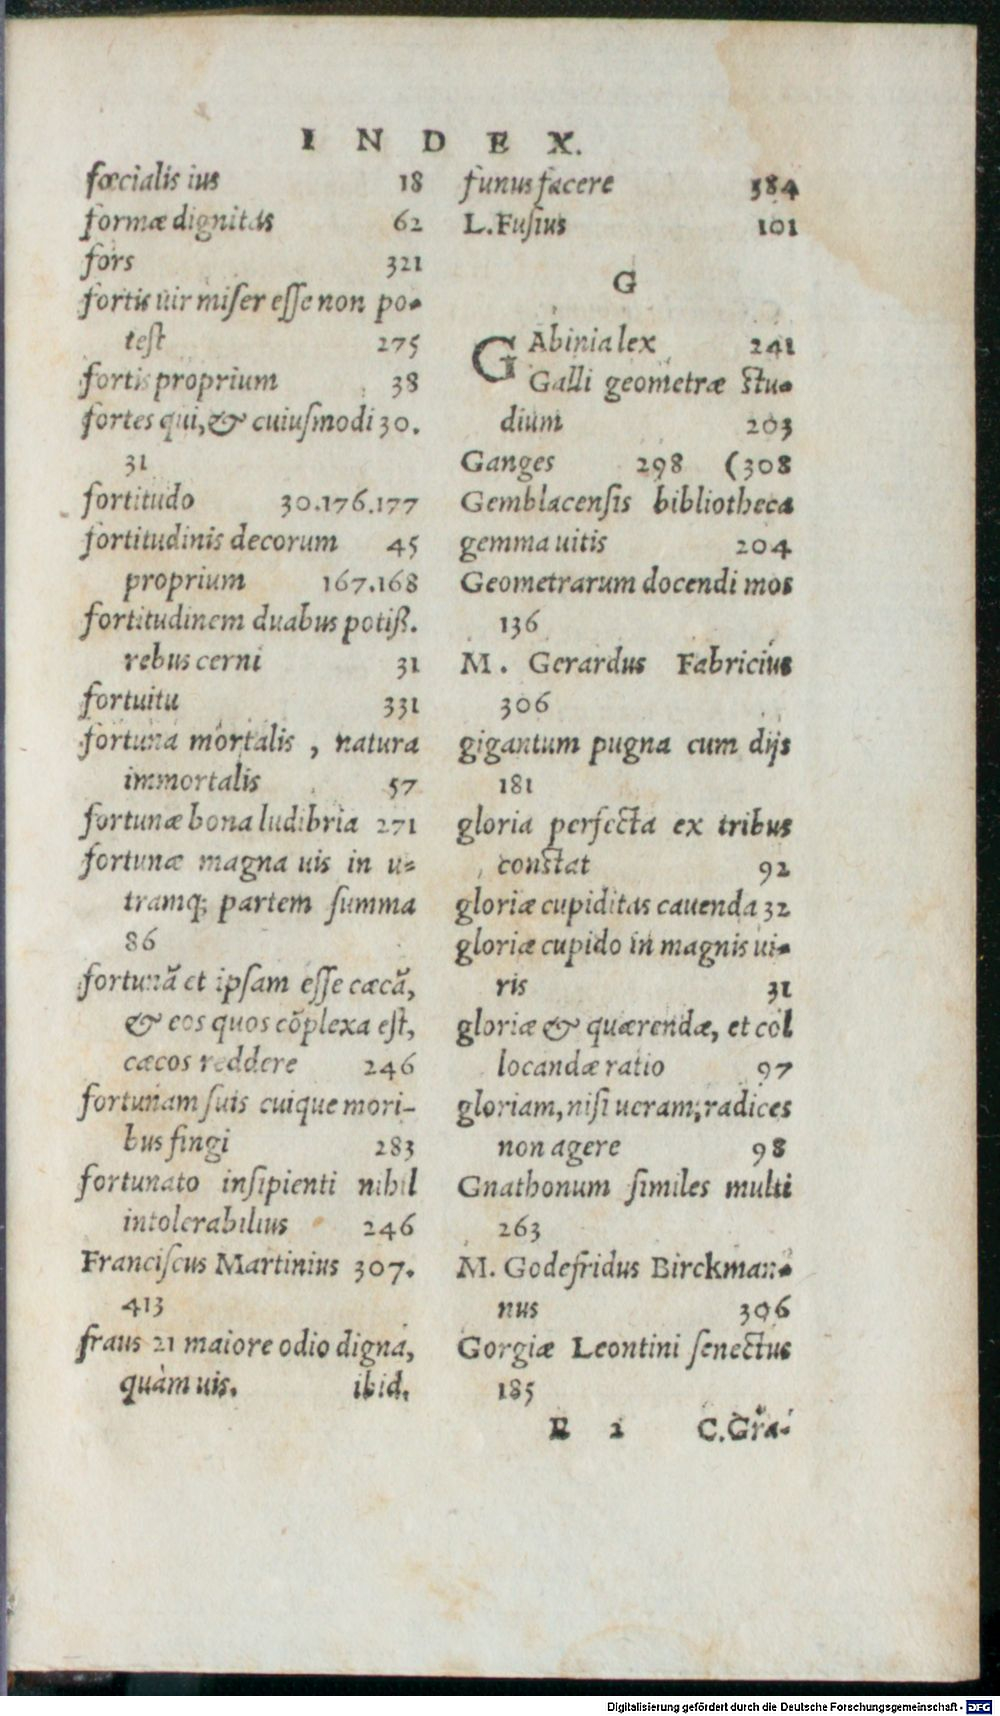 INDEX.
fœcialis ius 18
formæ dignitas 62
fors 321
fortis uir miser esse non po-
test 275
fortis proprium 38
fortes qui, & cuiusmodi 30.
31
fortitudo 30.176.177
fortitudinis decorum 45
proprium 167.168
fortitudinem duabus potiß.
rebus cerni 31
fortuitu 331
fortuna mortalis, natura
immortalis 57
fortunæ bona ludibria 271
fortunæ magna uis in u-
tramq; partem summa
86
fortunã et ipsam esse cæcã,
& eos quos cõplexa est,
cæcos reddere 246
fortunam suis cuique mori-
bus fingi 283
fortunato insipienti nihil
intolerabilius 246
Franciscus Martinius 307.
413
fraus 21 maiore odio digna,
quàm uis. ibid.
funus facere 384
L. Fusius 101
G
GAbinia lex 241
Galli geometræ stu-
dium 203
Ganges 298 (308
Gemblacensis bibliotheca
gemma uitis 204
Geometrarum docendi mos
136
M. Gerardus Fabricius
306
gigantum pugna cum dijs
181
gloria perfecta ex tribus
constat 92
gloriæ cupiditas cauenda 32
gloriæ cupido in magnis ui-
ris 31
gloriæ & quærendæ, et col
locandæ ratio 97
gloriam, nisi ueram, radices
non agere 98
Gnathonum similes multi
263
M. Godefridus Birckman-
nus 306
Gorgiæ Leontini senectus
185
E 2 C.Gra-
Digitalisierung gefördert durch die Deutsche Forschungsgemeinschaft - DFG